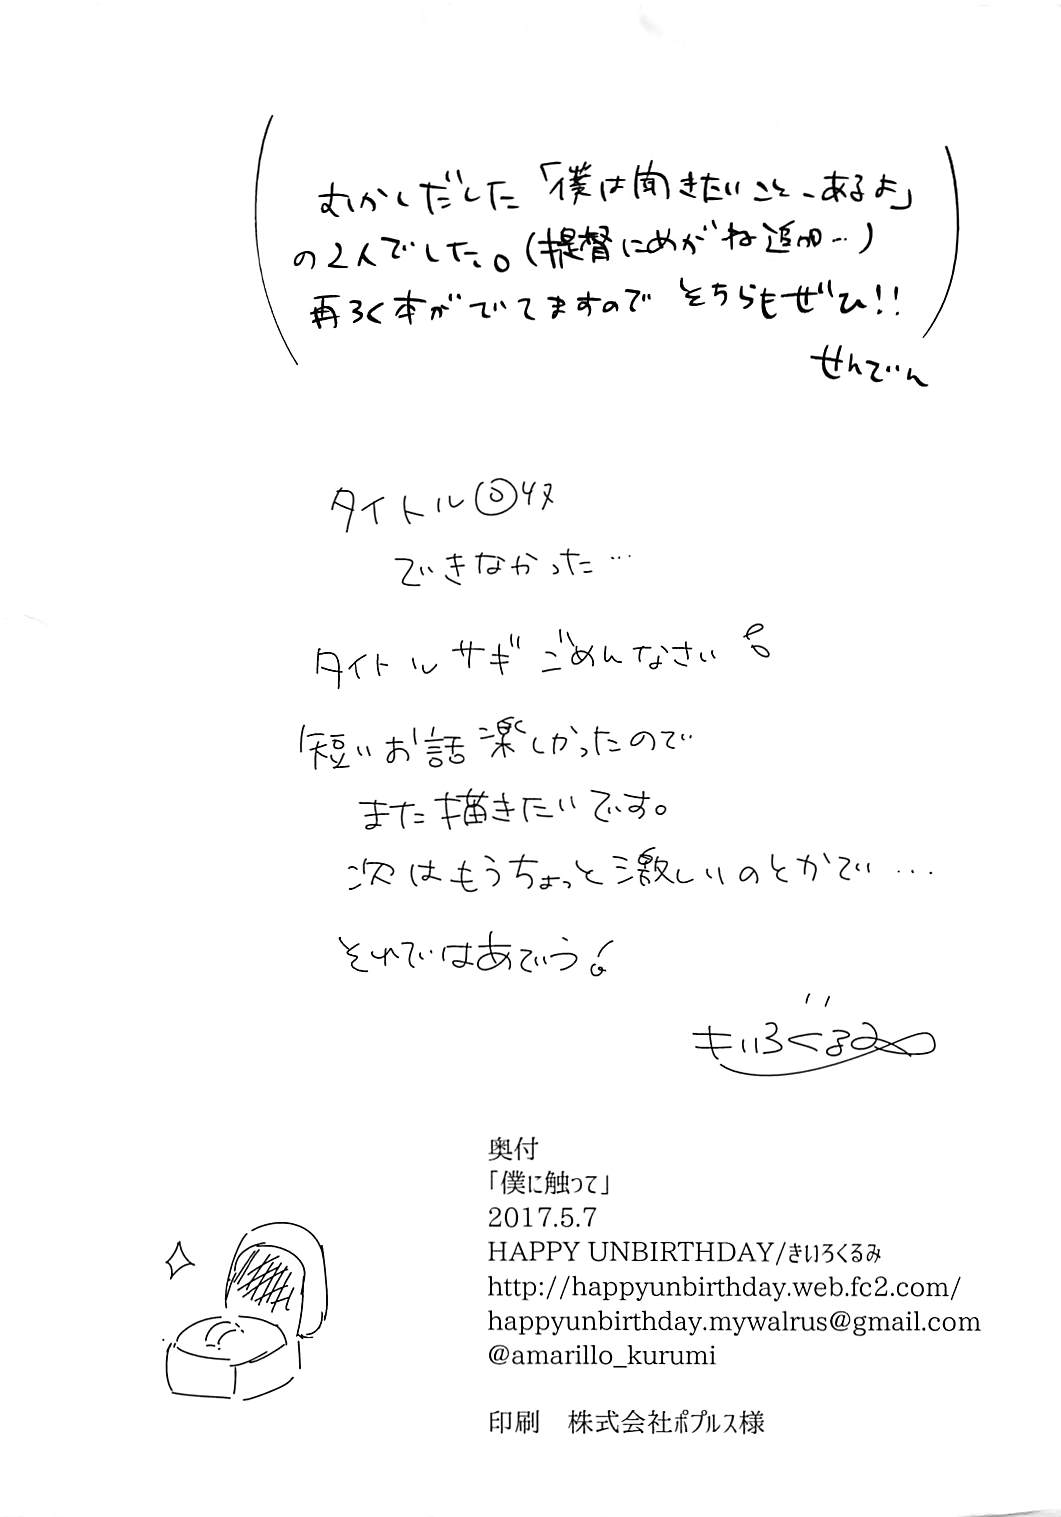 むかしだした「僕は聞きたいこと、あるよ」
の2人でした。(提督にめがね追加…)
再ろく本がでてますので そちらもぜひ!!
せんでん
タイトル回収
できなかった…
タイトルサギ ごめんなさい
短いお話 楽しかったので
また描きたいです。
次はもうちょっと激しいのとかで…
それではあでゅう!
きいろくるみ
奥付
「僕に触って」
2017.5.7
HAPPY UNBIRTHDAY/きいろくるみ
http://happyunbirthday.web.fc2.com/
happyunbirthday.mywalrus@gmail.com
@amarillo_kurumi
印刷　株式会社ﾎﾟﾌﾟﾙｽ様